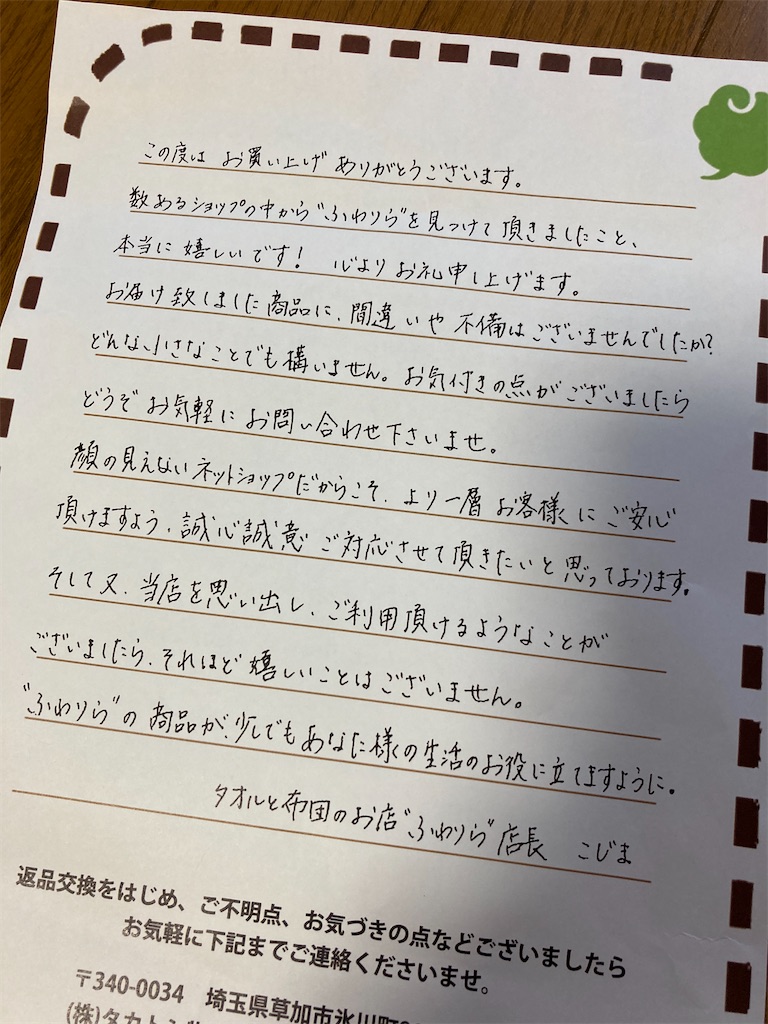 この度は お買い上げ ありがとうございます。
数あるショップの中から"ふわりら"を見つけて頂きましたこと、
本当に嬉しいです! 心よりお礼申し上げます。
お届け致しました商品に、間違いや不備はございませんでしたか?
どんな小さなことでも構いません。お気付きの点がございましたら
どうぞお気軽にお問い合わせ下さいませ。
顔の見えないネットショップだからこそ、より一層お客様にご安心
頂けますよう、誠心誠意ご対応させて頂きたいと思っております。
そして又、当店を思い出し、ご利用頂けるようなことが
ございましたら、それほど嬉しいことはございません。
"ふわりら"の商品が、少しでもあなた様の生活のお役に立てますように。
タオルと布団のお店"ふわりら"店長 こじま
返品交換をはじめ、ご不明点、お気づきの点などございましたら
お気軽に下記までご連絡くださいませ。
〒340-0034 埼玉県草加市氷川町
(株)タカ